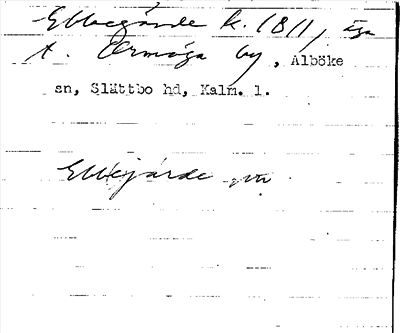 Ebbegärde k. (811, äga
t. Ormöga by, Alböke
sn, Slättbo hd, Kalm. l.
Ebbejärde